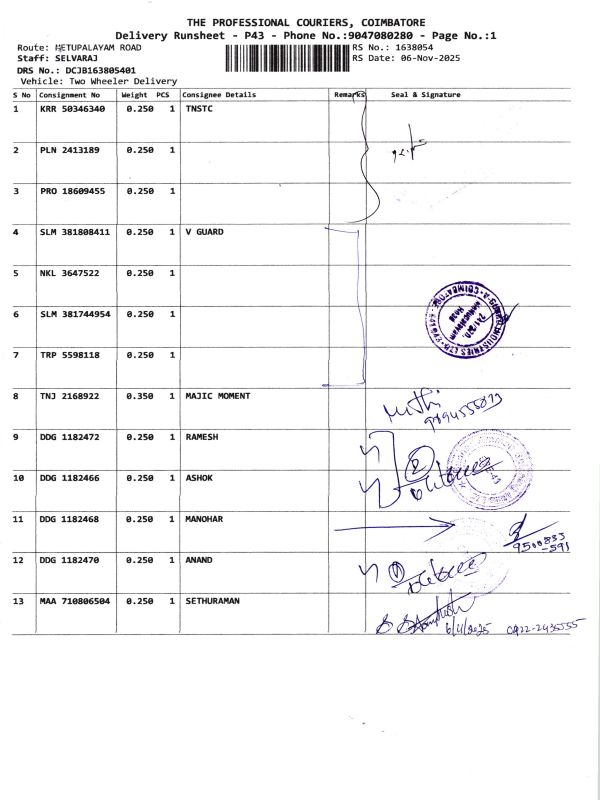 THE PROFESSIONAL COURIERS, COIMBATORE
Delivery Runsheet - P43 - Phone No.:9047080280 - Page No.:1
Route: METUPALAYAM ROAD RS No.: 1638054
Staff: SELVARAJ RS Date: 06-Nov-2025
DRS No.: DCJB163805401
Vehicle: Two Wheeler Delivery
S No Consignment No Weight PCS Consignee Details Remarks Seal & Signature
1 KRR 50346340 0.250 1 TNSTC
2 PLN 2413189 0.250 1
3 PRO 18609455 0.250 1
4 SLM 381808411 0.250 1 V GUARD
5 NKL 3647522 0.250 1
6 SLM 381744954 0.250 1
7 TRP 5598118 0.250 1
8 TNJ 2168922 0.350 1 MAJIC MOMENT
9 DDG 1182472 0.250 1 RAMESH
10 DDG 1182466 0.250 1 ASHOK
11 DDG 1182468 0.250 1 MANOHAR
9500833
-591
12 DDG 1182470 0.250 1 ANAND
13 MAA 710806504 0.250 1 SETHURAMAN
6/11/2025 0422-2435555